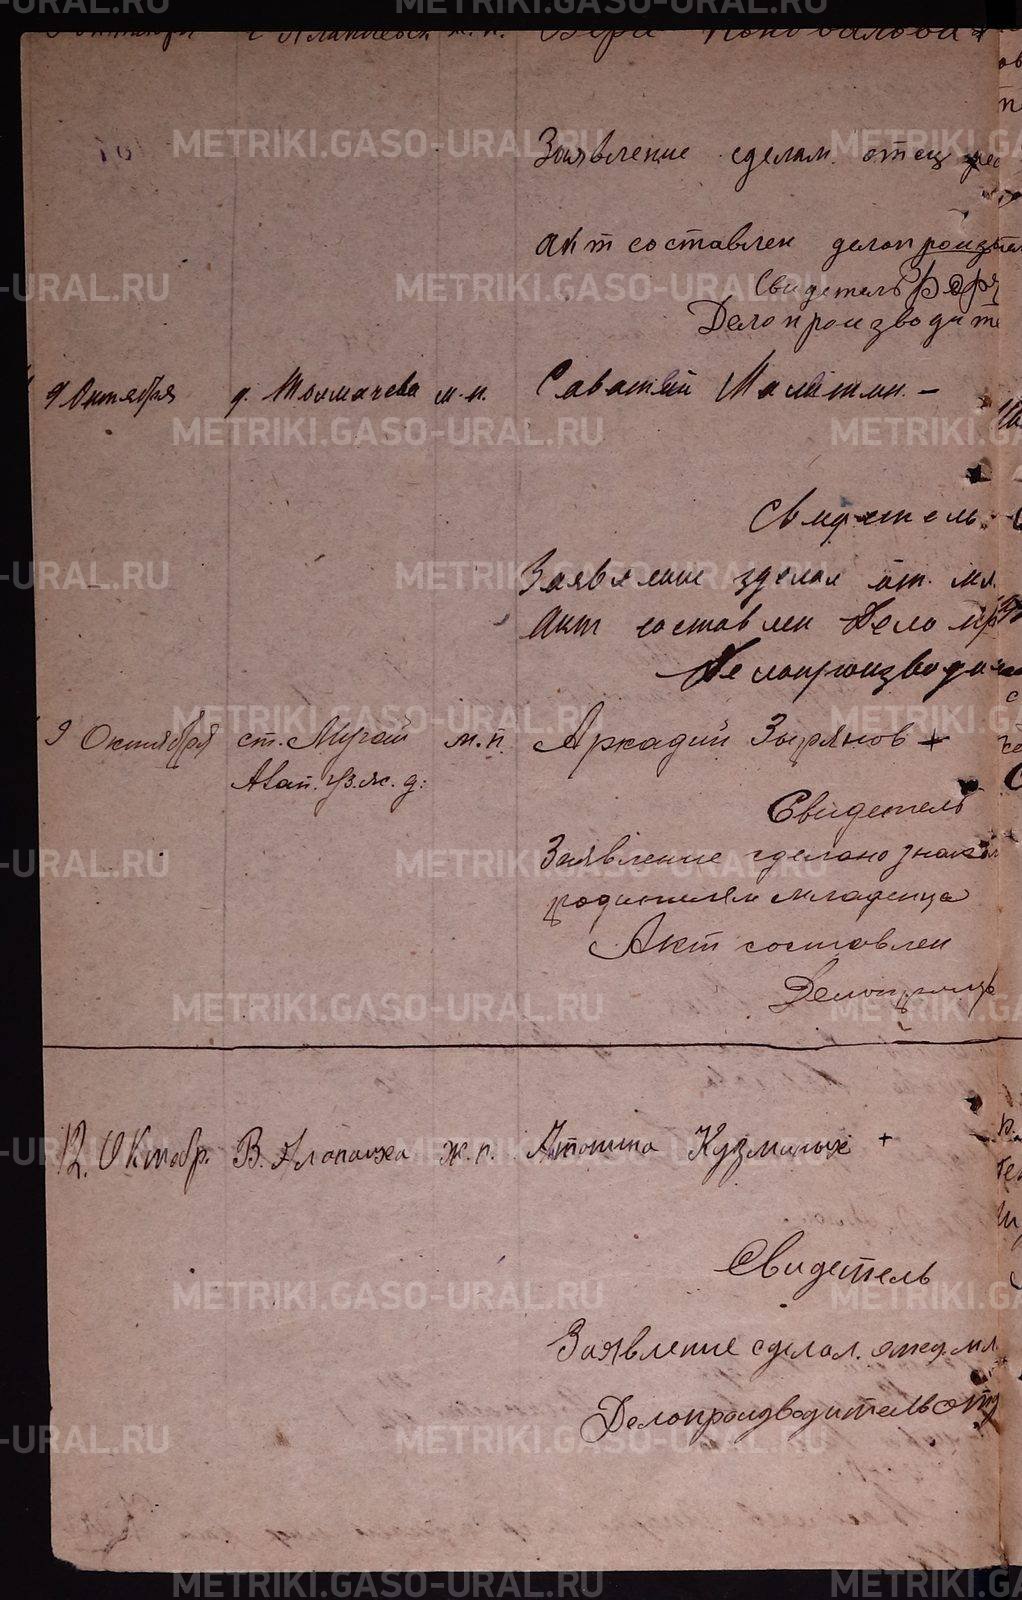 г. Алапаевск ж. п. Вера Коновалова +
Заявление сделал. отец
акт составлен делопроизвтел
Свидетель
Делопроизводите
9 Октября д. Толмачева м. п. Саватий Малыгин. –
Свидетель.
Заявление зделал от. мл.
Акт составлен Делопр
Делопроизводи
9 Октября ст. Мугай м. п. Аркадий Зырянов +
Алап. уз. ж. д.
Свидетель
Заявление сделано знаком
родителям младенца
Акт составлен
Делопроизв
12. Октябр. В. Алапаиха ж. п. Антонина Кузминых +
Свидетель
Заявление сделал. отец. мл
Делопроизводитель отд
METRIKI.GASO-URAL.RU